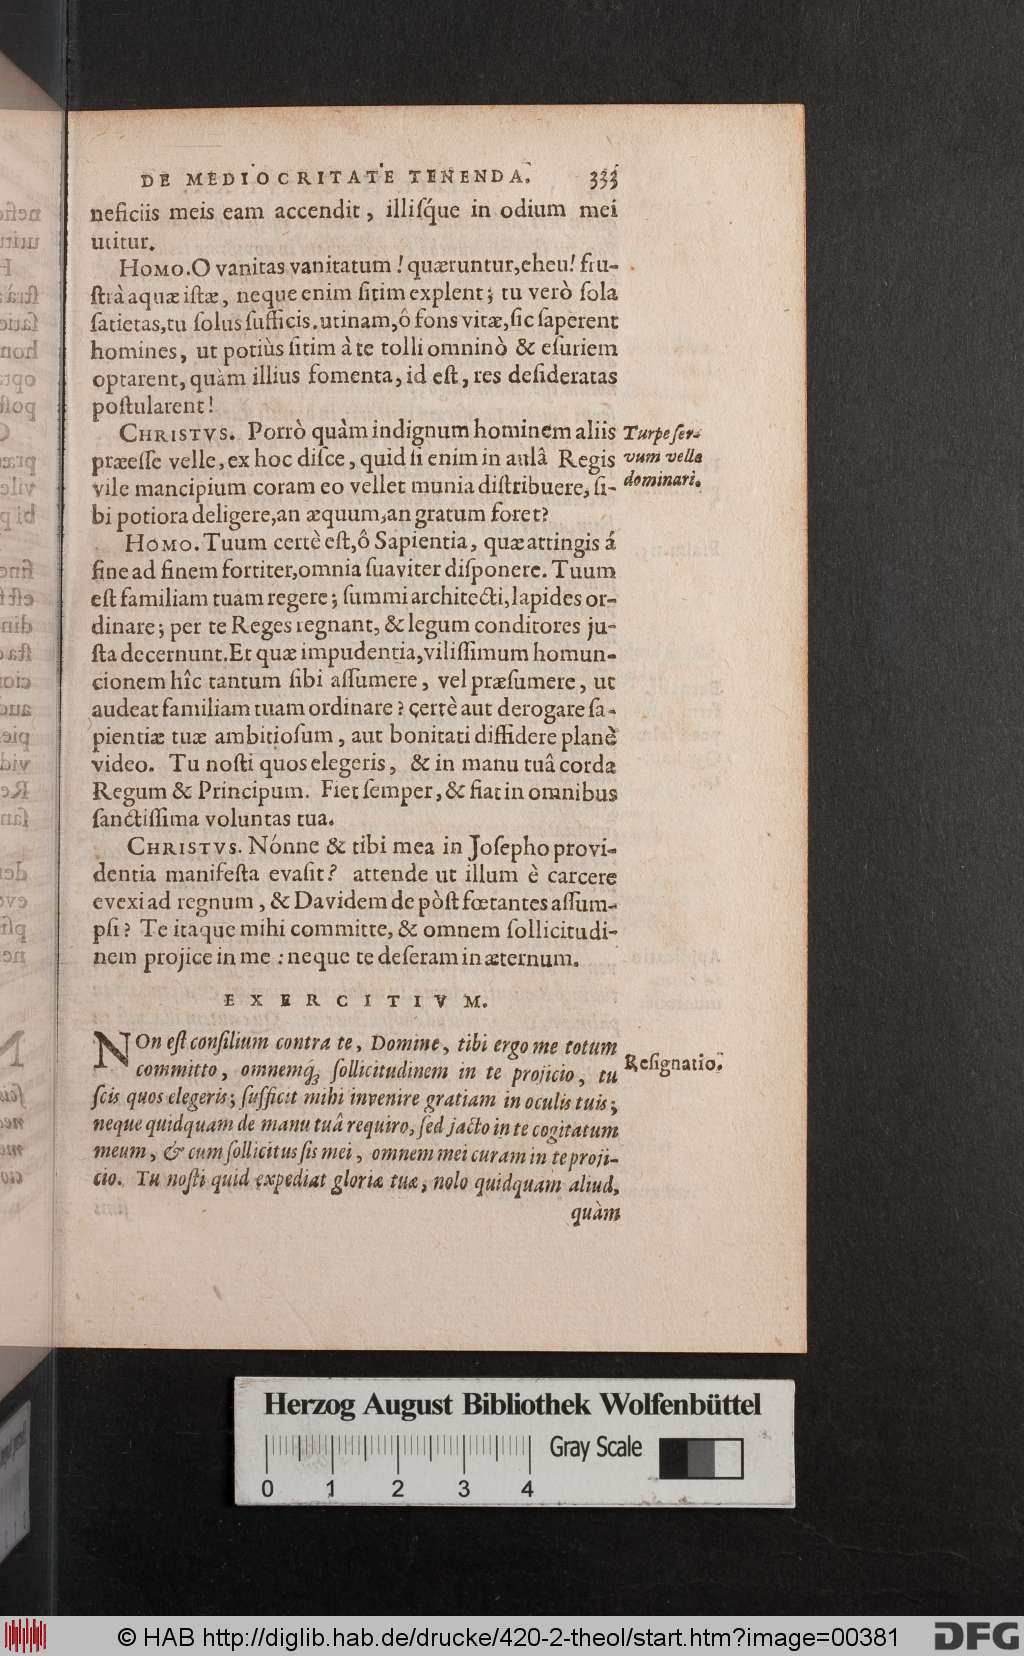 DE MEDIOCRITATE TENENDA. 333
neficiis meis eam accendit, illiſq́ue in odium mei
utitur.
HOMO. O vanitas vanitatum! quæruntur, eheu! fru-
ſtrà aquæ iſtæ, neque enim ſitim explent; tu verò ſola
ſatietas, tu ſolus ſufficis. utinam, ô fons vitæ, ſic ſaperent
homines, ut potiùs ſitim à te tolli omninò & eſuriem
optarent, quàm illius fomenta, id eſt, res deſideratas
poſtularent!
CHRISTVS. Porrò quàm indignum hominem aliis
præeſſe velle, ex hoc diſce, quid ſi enim in aulâ Regis
vile mancipium coram eo vellet munia diſtribuere, ſi-
bi potiora deligere, an æquum, an gratum foret?
Turpe ſer-
vum velle
dominari.
HOMO. Tuum certè eſt, ô Sapientia, quæ attingis á
fine ad finem fortiter, omnia ſuaviter diſponere. Tuum
eſt familiam tuam regere; ſummi architecti, lapides or-
dinare; per te Reges regnant, & legum conditores ju-
ſta decernunt. Et quæ impudentia, viliſſimum homun-
cionem hîc tantum ſibi aſſumere, vel præſumere, ut
audeat familiam tuam ordinare? certè aut derogare ſa-
pientiæ tuæ ambitioſum, aut bonitati diffidere planè
video. Tu noſti quos elegeris, & in manu tuâ corda
Regum & Principum. Fiet ſemper, & fiat in omnibus
ſanctiſſima voluntas tua.
CHRISTVS. Nónne & tibi mea in Joſepho provi-
dentia manifeſta evaſit? attende ut illum è carcere
evexi ad regnum, & Davidem de pòſt fœtantes aſſum-
pſi? Te itaque mihi committe, & omnem ſollicitudi-
nem projice in me: neque te deſeram in æternum.
EXERCITIVM.
NOn eſt conſilium contra te, Domine, tibi ergo me totum
committo, omnemq́; ſollicitudinem in te projicio, tu
ſcis quos elegeris; ſufficit mihi invenire gratiam in oculis tuis;
neque quidquam de manu tuâ requiro, ſed jacto in te cogitatum
meum, & cum ſollicitus ſis mei, omnem mei curam in te proji-
cio. Tu noſti quid expediat gloriæ tuæ, nolo quidquam aliud,
quàm
Reſignatio.
Herzog August Bibliothek Wolfenbüttel
Gray Scale
0 1 2 3 4
© HAB http://diglib.hab.de/drucke/420-2-theol/start.htm?image=00381
DFG